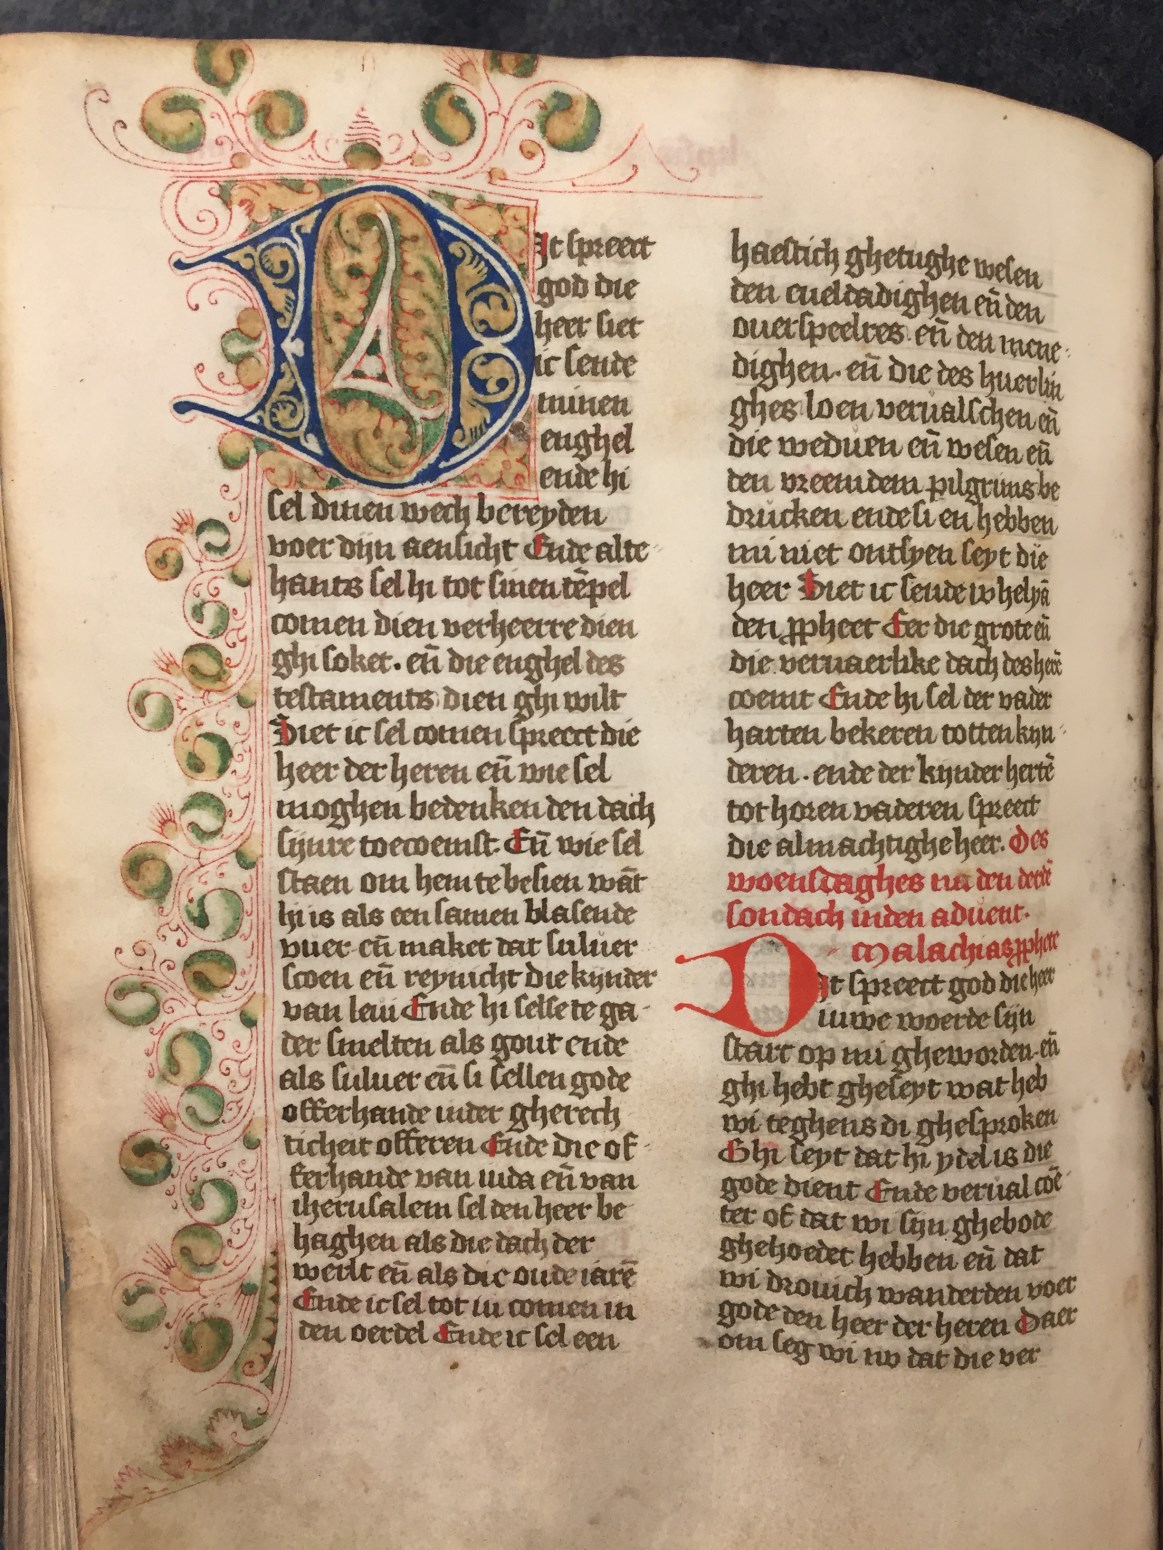 Dit spreect
god die
heer siet
ic sende
minen
enghel
ende hi
sel dinen wech bereyden
voer dijn aensicht Ende alte
hants sel hi tot sinen tēpel
comen dien verheerre dien
ghi soket. eñ die enghel des
testaments dien ghi wilt
Siet ic sel comen spreect die
heer der heren eñ wie sel
moghen bedenken den dach
sijnre toecoemst. Eñ wie sel
staen om hem te besien wāt
hi is als een samen blasende
vuer eñ maket dat suluer
scoen eñ reynicht die kijnder
van leui Ende hi selse te ga
der smelten als gout ende
als suluer eñ si sellen gode
offerhande inder gherech
ticheit offeren Ende die of
ferhande van iuda eñ van
iherusalem sel den heer be
haghen als die dach der
werlt eñ als die oude iarē
Ende ic sel tot iu comen in
den oerdel Ende ic sel een
haestich ghetughe wesen
den eueldadighen eñ den
ouerspeelres. eñ den mene
dighen. eñ die des huerlin
ghes loen verualschen eñ
die weduen eñ wesen eñ
den vreemdem pilgrims be
drucken ende si en hebben
mi niet ontsyen seyt die
heer Siet ic sende iw helyā
den ꝓpheet Eer die grote eñ
die veruaerlike dach des herē
coemt Ende hi sel der vader
harten bekeren totten kijn
deren. ende der kijnder hertē
tot horen vaderen spreect
die almachtighe heer. Des
woensdaghes na den derdē
sondach inden aduent.
Malachias ꝓpheet
Dit spreect god die heer
iuwe woerde sijn
starc op mi gheworden. eñ
ghi hebt gheseyt wat heb
wi teghens di ghesproken
Ghi seyt dat hi ydel is die
gode dient Ende verual coē
ter of dat wi sijn ghebode
ghehoedet hebben eñ dat
wi drouich wanderden voer
gode den heer der heren Daer
om seg wi nv dat die ver